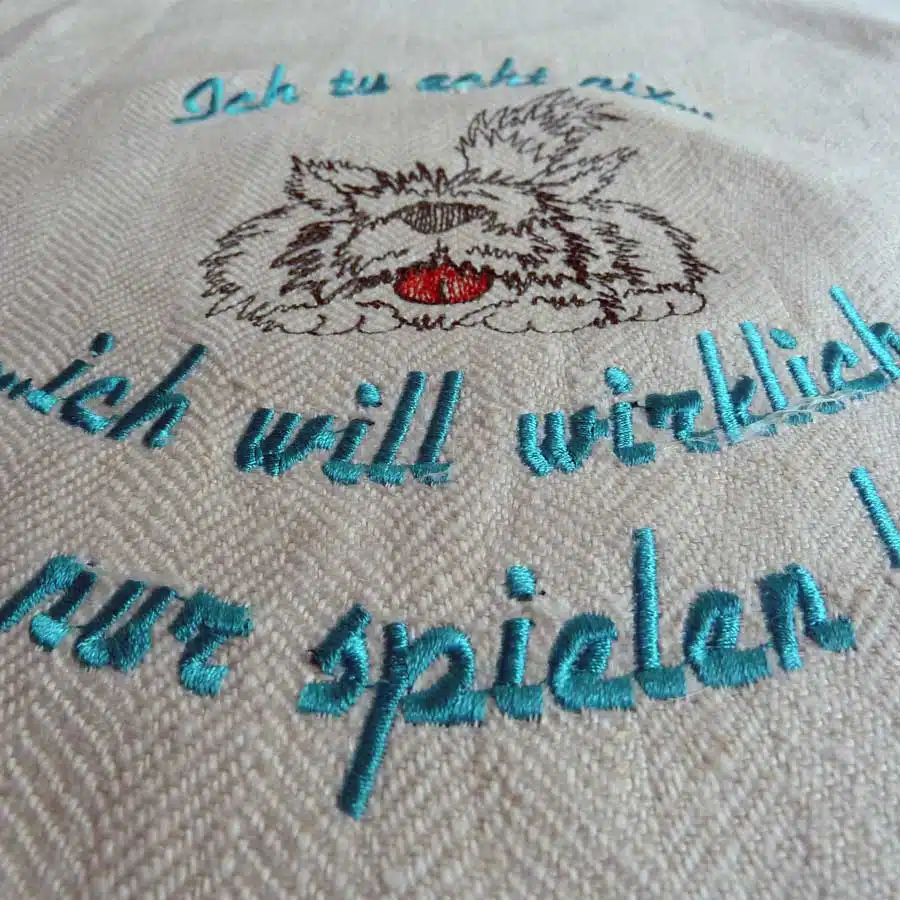 Ich tu echt nix...
...ich will wirklich
nur spielen !